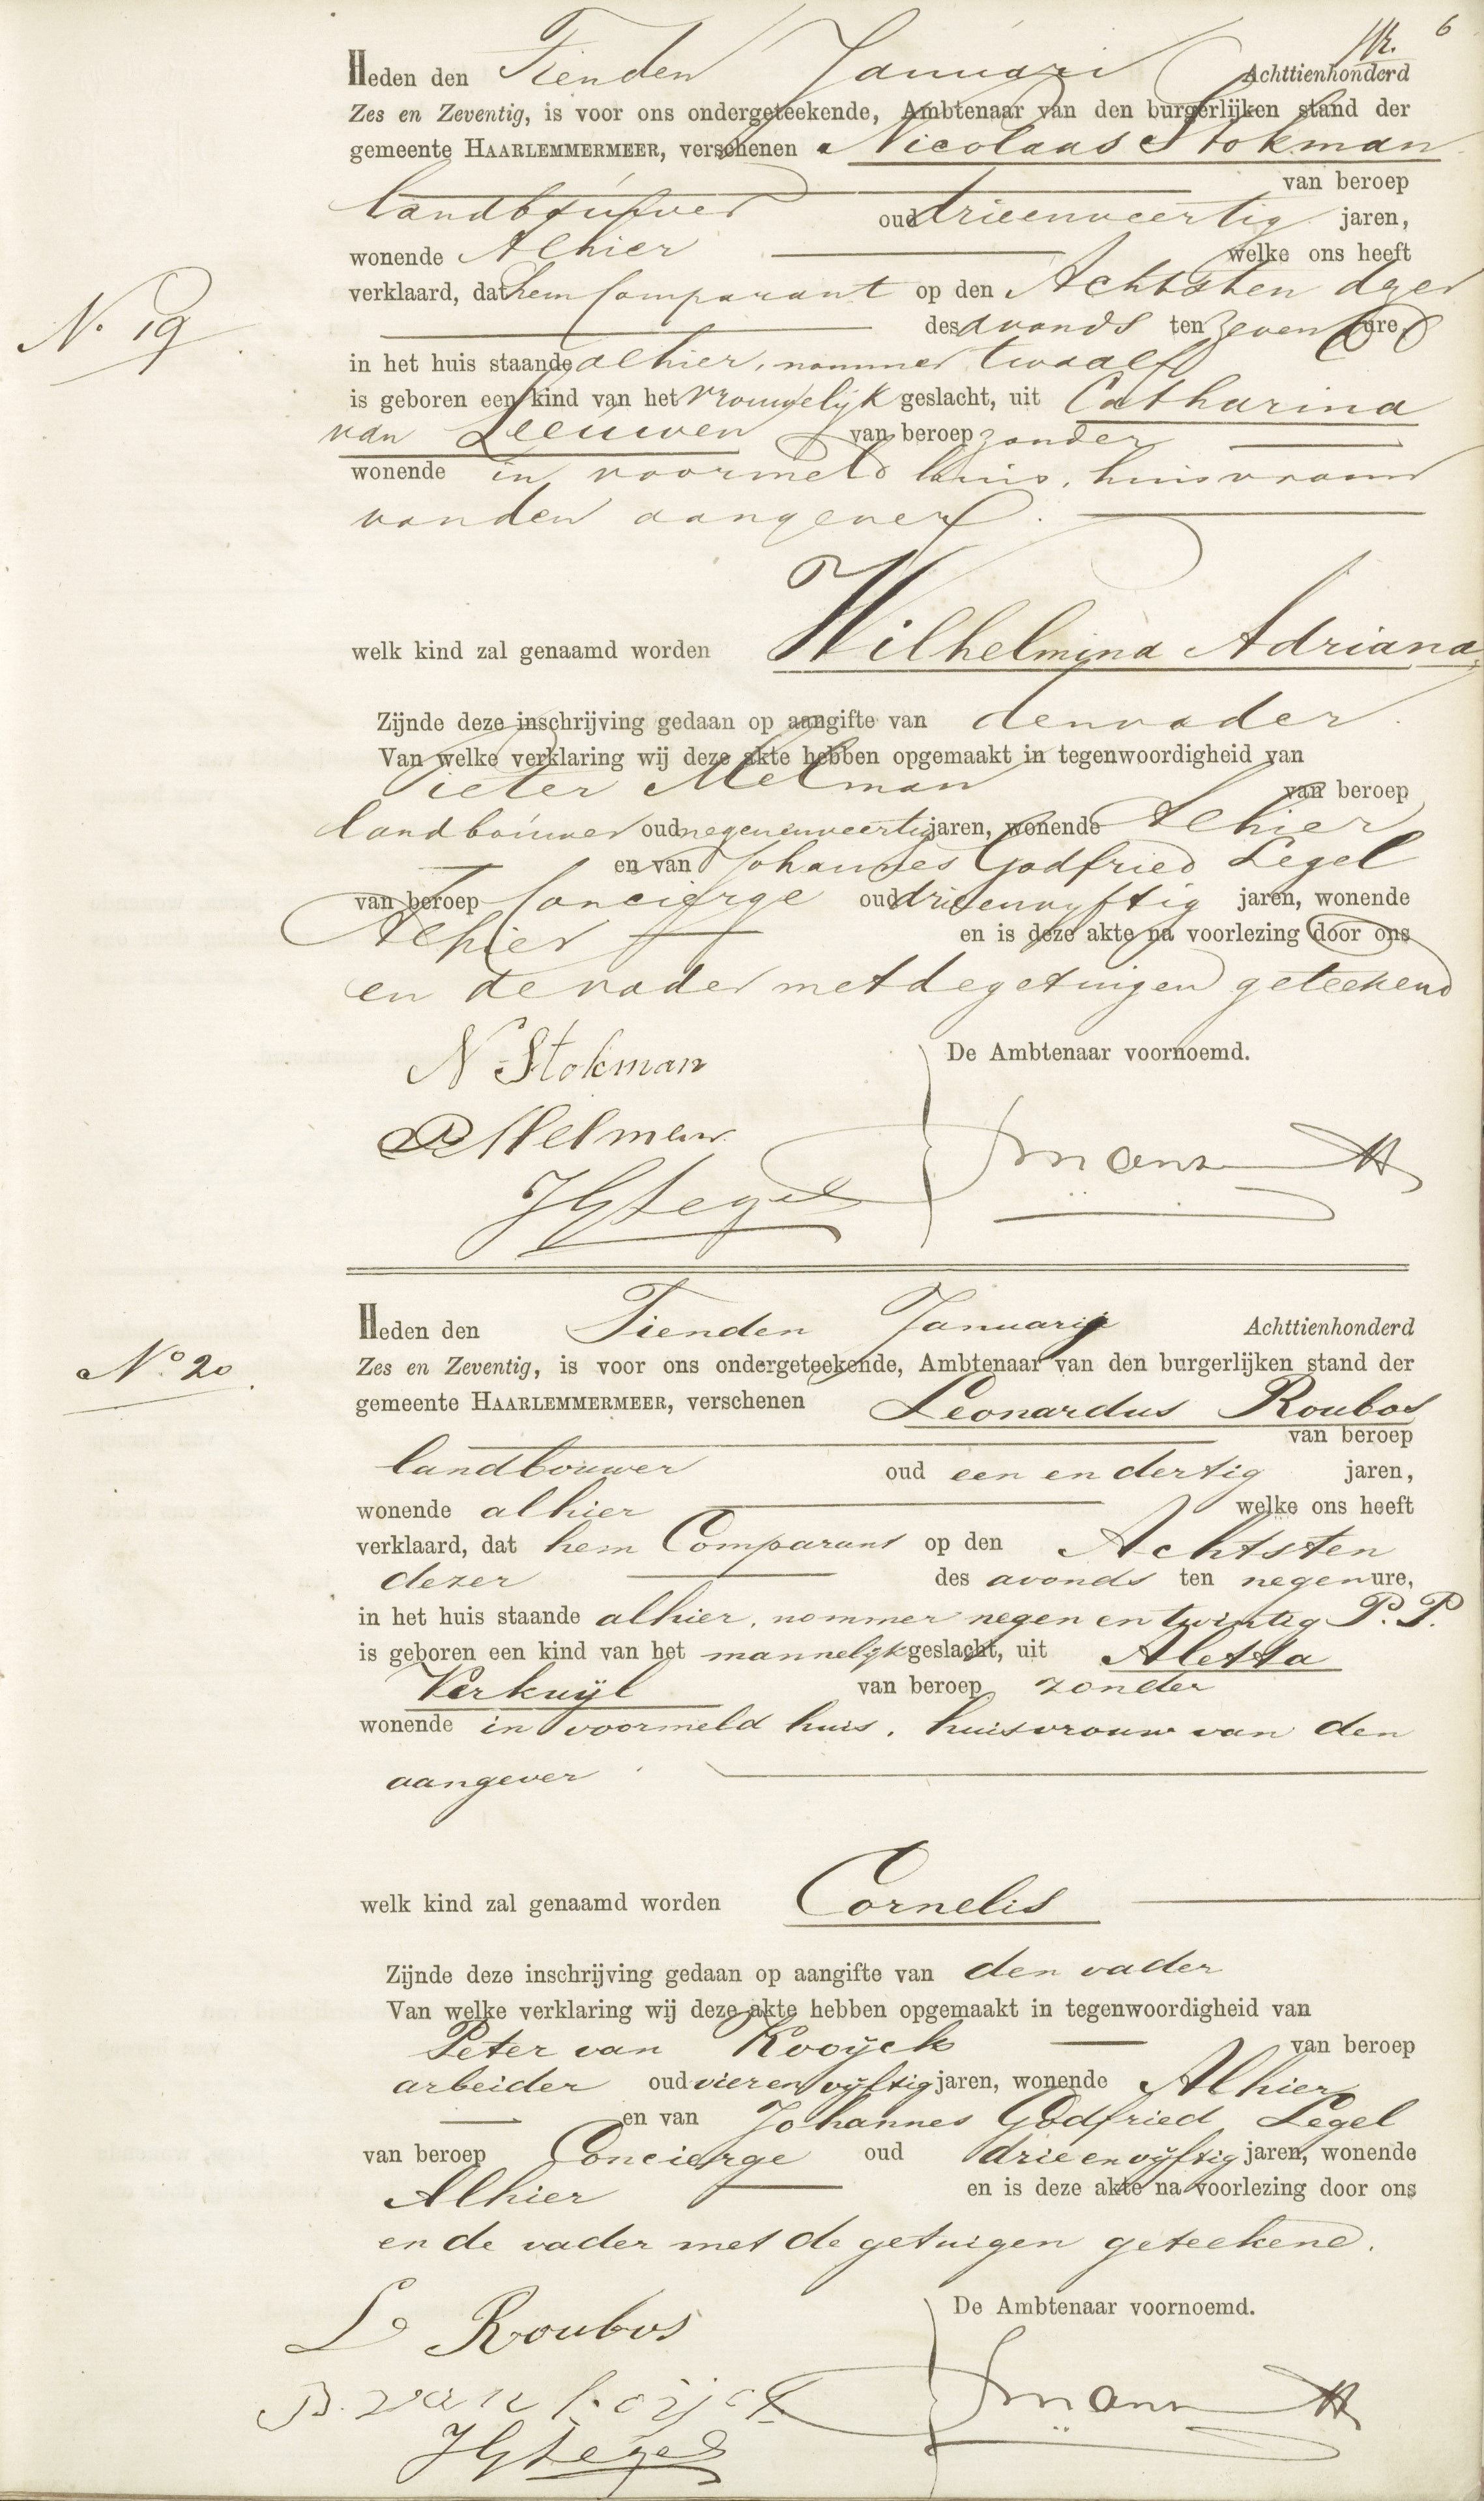 6
Heden den Tienden Januari Achttienhonderd
Zes en Zeventig, is voor ons ondergeteekende, Ambtenaar van den burgerlijken stand der
gemeente HAARLEMMERMEER, verschenen Nicolaas Stokman
van beroep
landbouwer oud drieenveertig jaren,
wonende Alhier welke ons heeft
verklaard, dat hem Comparant op den Achtsten dezer
des avonds ten zeven ure,
N. 19
in het huis staande alhier, nommer twaalf
is geboren een kind van het vrouwelijk geslacht, uit Catharina
van Leeuwen van beroep zonder
wonende in voormeld huis, huisvrouw
van den aangever.
welk kind zal genaamd worden Wilhelmina Adriana
Zijnde deze inschrijving gedaan op aangifte van den vader.
Van welke verklaring wij deze akte hebben opgemaakt in tegenwoordigheid van
Pieter Melman van beroep
landbouwer oud negenenveertig jaren, wonende Alhier
en van Johannes Godfried Legel
van beroep Concierge oud drieenvyftig jaren, wonende
Alhier en is deze akte na voorlezing door ons
en de vader met de getuigen geteekend
N Stokman De Ambtenaar voornoemd.
P Melman
JGLegel
Heden den Tienden Januarij Achttienhonderd
N° 20.
Zes en Zeventig, is voor ons ondergeteekende, Ambtenaar van den burgerlijken stand der
gemeente HAARLEMMERMEER, verschenen Leonardus Roubos
van beroep
landbouwer oud een en dertig jaren,
wonende alhier welke ons heeft
verklaard, dat hem Comparant op den Achtsten
dezer des avonds ten negen ure,
in het huis staande alhier, nommer negen en twintig P. P.
is geboren een kind van het mannelyk geslacht, uit Aletta
Verkuijl van beroep zonder
wonende in voormeld huis, huisvrouw van den
aangever.
welk kind zal genaamd worden Cornelis
Zijnde deze inschrijving gedaan op aangifte van den vader
Van welke verklaring wij deze akte hebben opgemaakt in tegenwoordigheid van
Peter van Kooijck van beroep
arbeider oud vier en vijftig jaren, wonende Alhier
en van Johannes Godfried Legel
van beroep Concierge oud drie en vijftig jaren, wonende
Alhier en is deze akte na voorlezing door ons
en de vader met de getuigen geteekend.
L Roubos De Ambtenaar voornoemd.
JGLegel